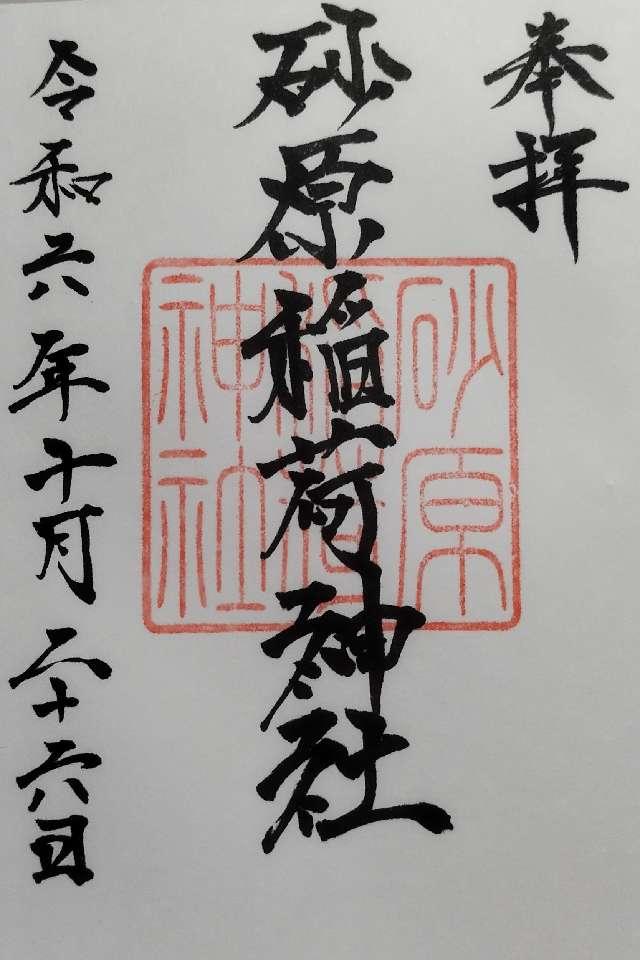 奉拝
砂原稲荷神社
令和六年十月二十六日
砂原
稲荷
神社